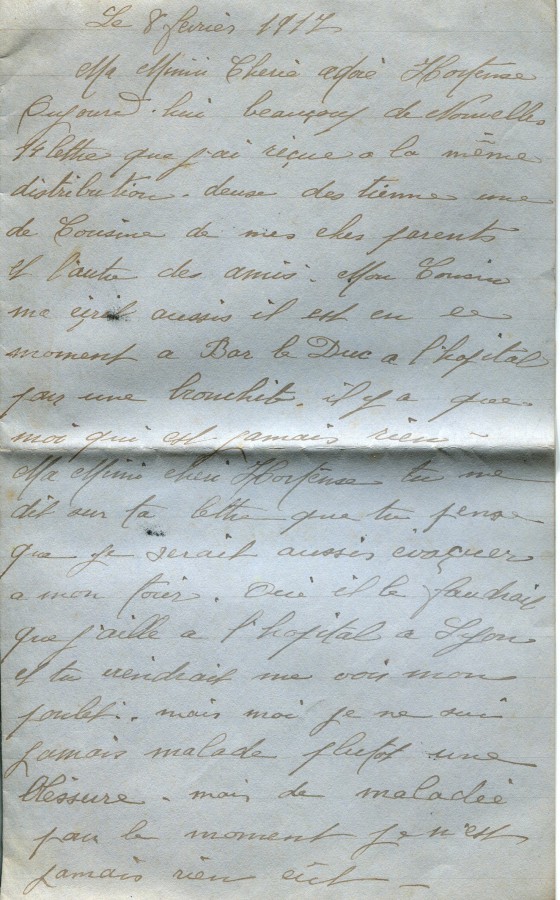 Le 8 février 1917
Ma Mimi Cherie adoré Hortense
Aujourd'hui beaucoup de Nouvelles
14 lettre que j'ai reçue a la même
distribution. deuse des tienne une
de Cousine de mes cher parents
et l'autre des amis. Mon Cousin
me ejrit aussis il est en ce
moment a Bar le Duc a l'hopital
pour une bronchit. il y a que
moi qui est jamais rien
Ma Mimi cheri Hortense tu me
dit sur ta lettre que tu pense
que je serait aussis evaçuer
a mon tour. Oui il le faudrait
que j'aille a l'hopital a Lyon
et tu viendrait me vois mon
poulet. mais moi je ne sui
jamais malade plutot une
Bléssure. mais de maladie
pour le moment je n'est
jamais rien eût